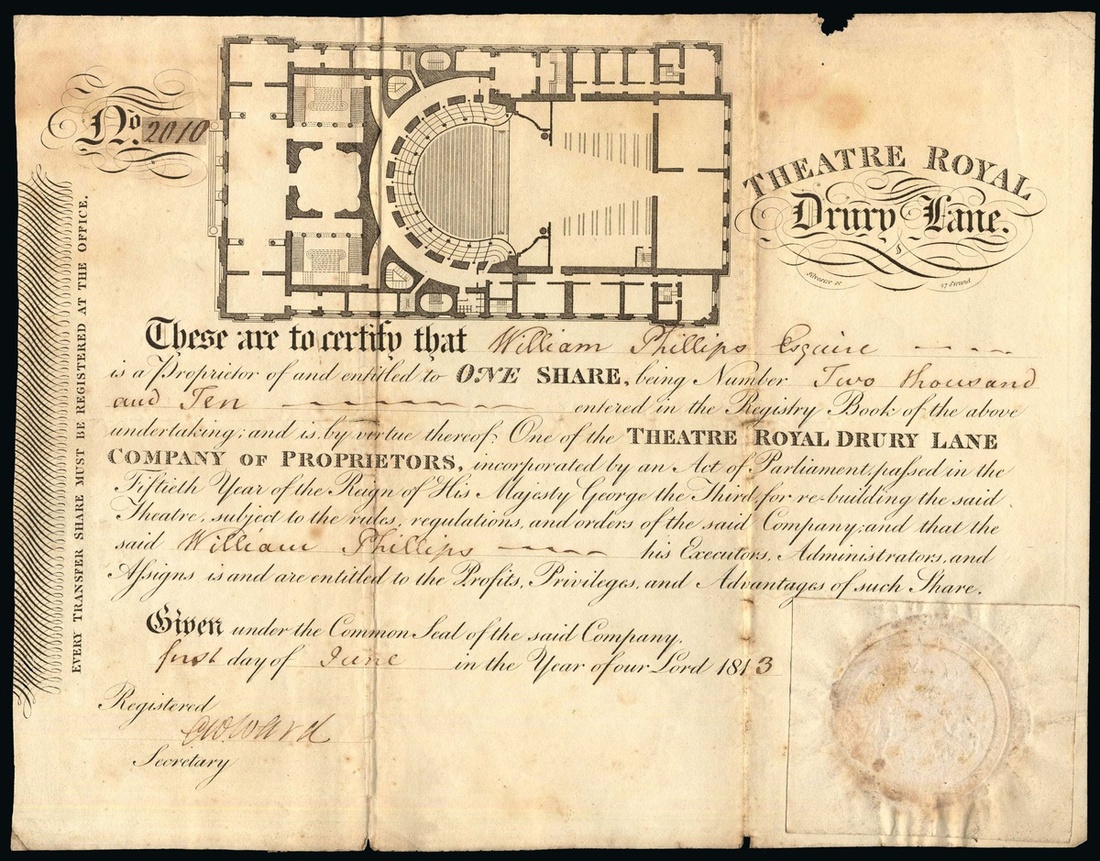 No. 2010
THEATRE ROYAL
Drury Lane.
Silvester sc 27 Strand
EVERY TRANSFER SHARE MUST BE REGISTERED AT THE OFFICE.
These are to certify that William Phillips Esquire
is a Proprietor of and entitled to ONE SHARE, being Number Two thousand
and Ten entered in the Registry Book of the above
undertaking; and is by virtue thereof, One of the THEATRE ROYAL DRURY LANE
COMPANY OF PROPRIETORS, incorporated by an Act of Parliament, passed in the
Fiftieth Year of the Reign of His Majesty George the Third, for re-building the said
Theatre, subject to the rules, regulations, and orders of the said Company; and that the
said William Phillips his Executors, Administrators, and
Assigns is and are entitled to the Profits, Privileges, and Advantages of such Share.
Given under the Common Seal of the said Company.
first day of June in the Year of our Lord 1813
Registered
C W Ward
Secretary